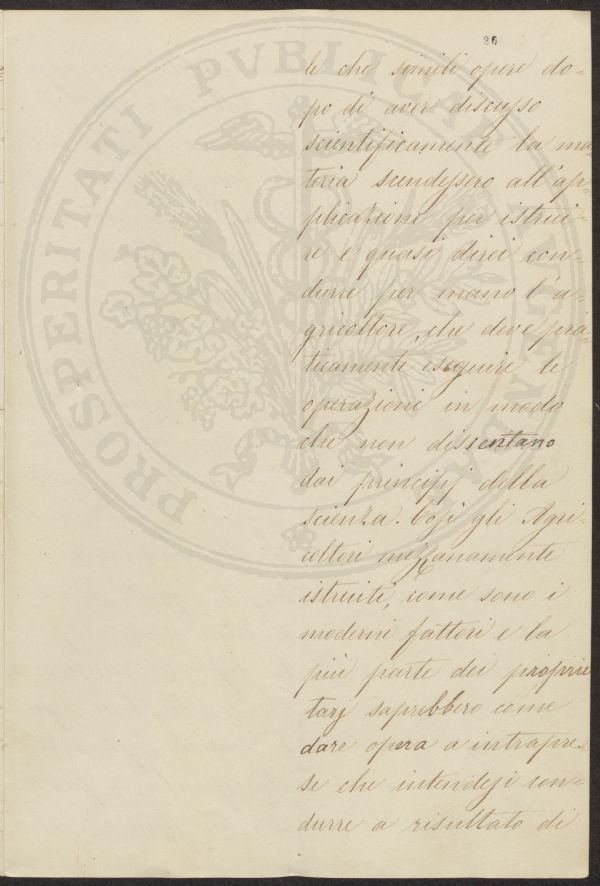 26
le che simili opere do=
po di aver discusso
scientificamente la ma
teria scendessero all'ap=
plicazione per istrui=
re e quasi direi con=
durre per mano l'a=
gricoltore, che deve pra=
ticamente eseguire le
operazioni in modo
che non dissentano
dai principj della
scienza. Così gli Agri=
coltori mezzanamente
istruiti, come sono i
moderni fattori e la
più parte dei proprie
tarj saprebbero come
dare opera a intrapre=
se che intendesi con=
durre a risultato di
PROSPERITATI PVBLICAE AVGENDAE